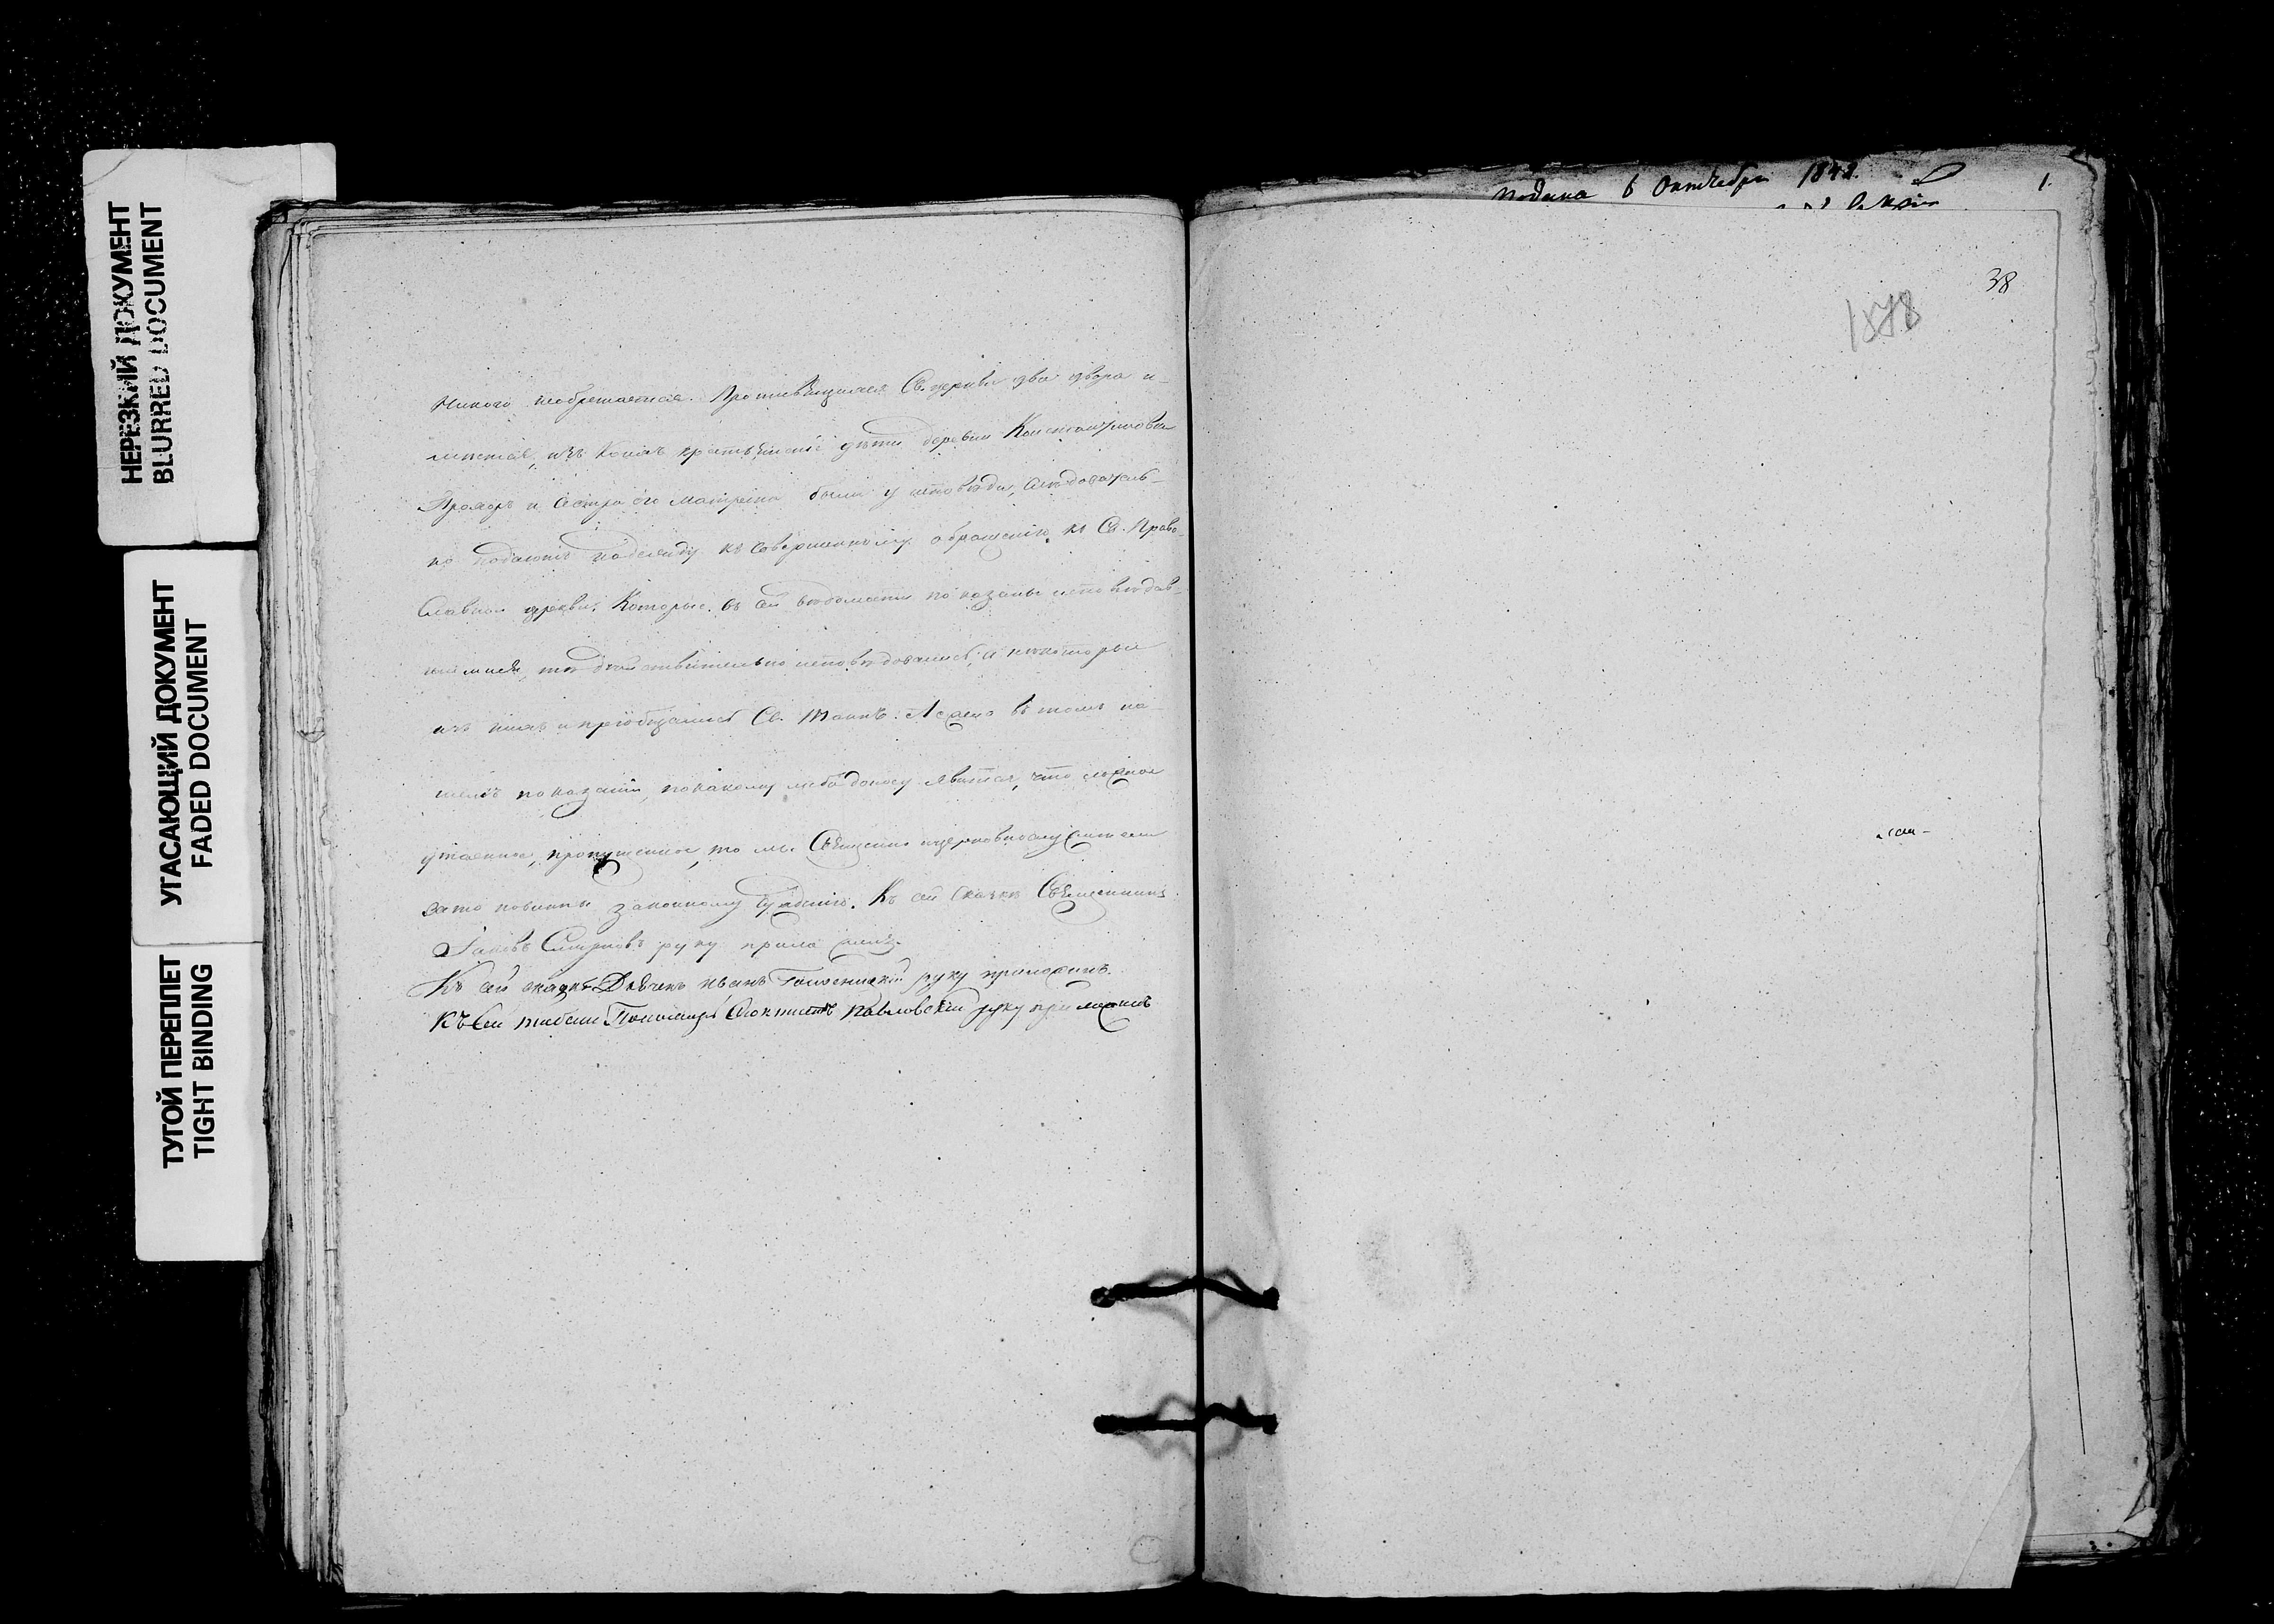 НЕРЕЗКИЙ ДОКУМЕНТ
BLURRED DOCUMENT
УГАСАЮЩИЙ ДОКУМЕНТ
FADED DOCUMENT
ТУГОЙ ПЕРЕПЛЕТ
TIGHT BINDING
никого необретается. Св. церкви два двора и-
изъ коихъ дѣти деревни Константинова
и сестра его Матрена были у исповѣди, слѣдователь-
но подаютъ надежду къ совершенному обращенію къ Св. Право-
славной церкви. Которые въ сей вѣдомости показаны исповѣдав-
шимися, тѣ дѣйствительно исповѣдовались, а некоторые
изъ нихъ и пріобщались Св. Таинъ. А ежели въ томъ на-
шемъ показаніи, по какому либо доносу явится, что ложное
утаенное, пропущенное, то мы Священно церковнослужители
за то повинны законному сужденію. Къ сей сказкѣ Священникъ
Іаковъ Смирновъ руку приложилъ.
Къ сей сказкѣ Дьячекъ Иванъ руку приложилъ.
Къ сей Пономарь Павловскій руку приложилъ
Подана 6 Октября
1.
38
1878